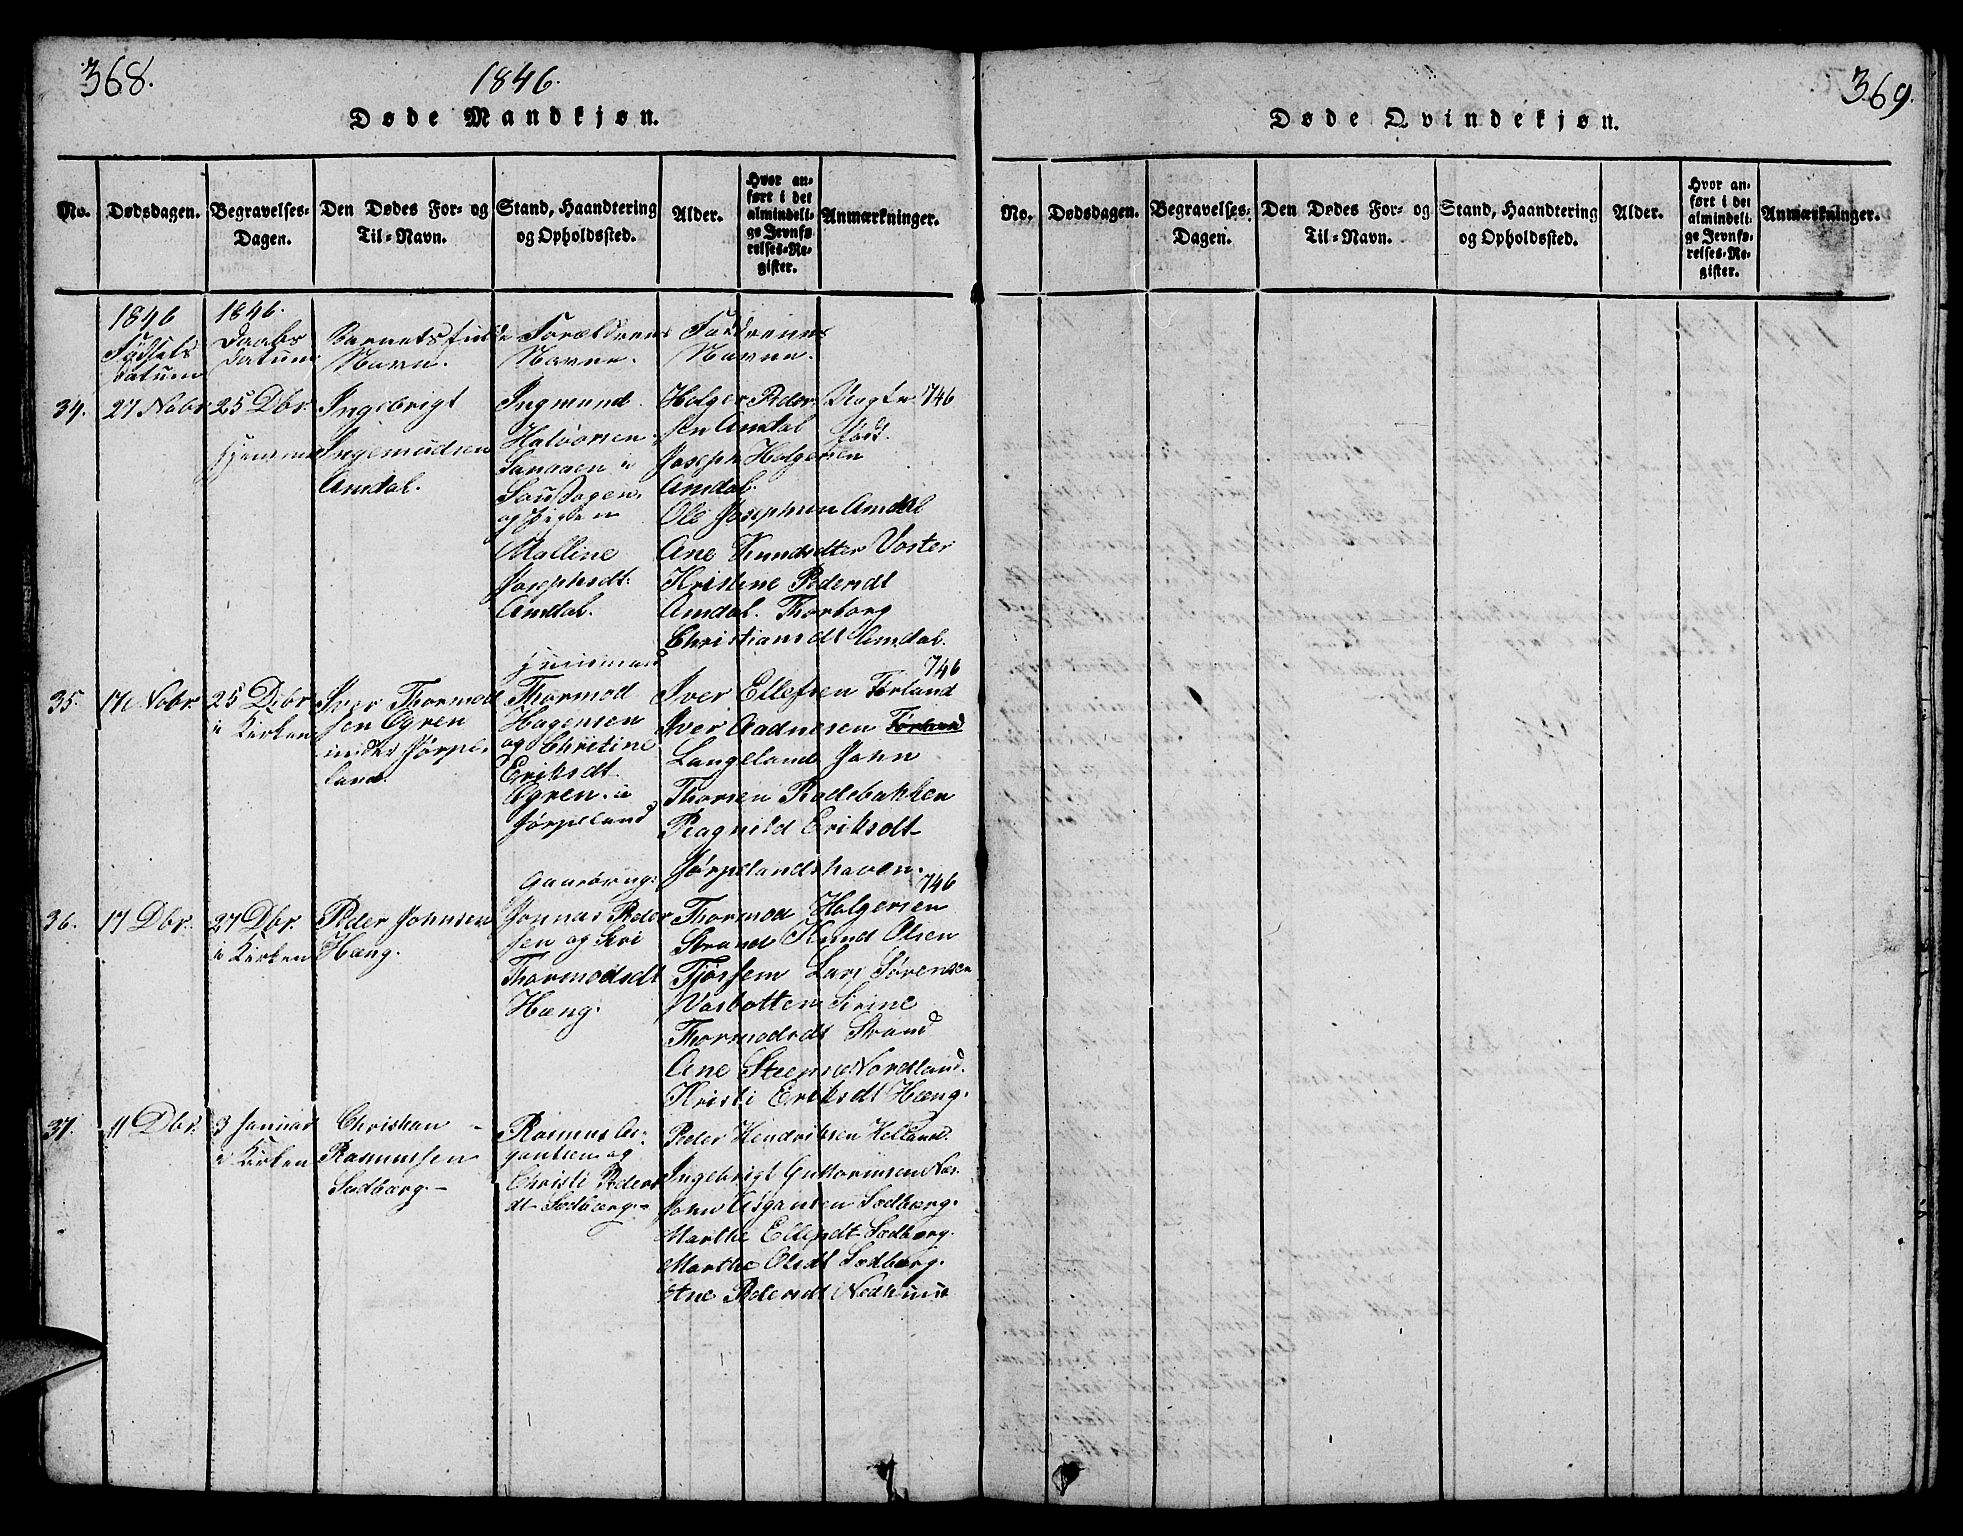 368.
1846.
Døde Mandkjøn.
No.
Dødsdagen.
Begravelses-
Dagen.
Den Dødes For- og
Til-Navn.
Stand, Haandtering
og Opholdssted.
Alder.
Hvor an-
ført i det
almindeli-
ge Jevnfø-
relses-Re-
gister.
Anmærkninger.
1846
Fødsels
Datum
1846.
Daabs
Datum
Barnets fulde
Navn.
Forældrenes
Navne.
Faddernes
Navne.
34.
27 Nobr
25 Dbr.
hjemme
Ingebrigt
Ingemudsen
Amdal.
Ingmund
Halvorsen
i
og Pigen
Malline
Josephsdt.
Amdal.
Holger Peder
sen Amdal
Joseph Holgersen
Amdal.
Ole Josephsen Amdal
Ane Knudsdtter Voster
Kristine Pedersdt
Amdal. Thorborg
Christiansdt Amdal.
Uægte
født.
746
35.
17 Nobr
25 Debr
i Kirken
Iver Thormod
sen Ogren
under Jørpe-
land.
Huusmand
Thormod
Hagensen
og Christine
Eriksdt.
Ogren i
Jørpeland
746
Iver Ellefsen Førland
Iver Aadnesen Førland
Langeland John
Thorsen Rodebakken
Ragnild Eriksdt
Jørpelandshaven.
36.
17 Dbr.
27 Dbr.
i Kirken
Peder Johnsen
Hæng.
Gaardbrug:
Jonnas Peder
sen og Siri
Thormodsdt
Hæng.
746
Thormod Holgersen
Strand Knud Olsen
Tjøssem Lars Sørensen
Vosbotten Sirine
Thormodsdt Strand
Ane Steensd Nordland.
Kristi Eriksdt Hæng.
37.
11 Dbr.
3 Januar
i Kirken
Christian
Rasmussen
Sedberg.-
Rasmus As-
gautsen og
Christi Peders
dt Sedberg.-
Peder Hendriksen Helland.
Ingebrigt Guttormsen Næs.
John Asgautsen Sedberg.
Marthe Ellefsdt Sedberg.
Marthe Olsdt Sedberg.
Ane Pedersdt Nedhuus
369.
Døde Qvindekjøn.
No.
Dødsdagen.
Begravelses-
Dagen.
Den Dødes For- og
Til-Navn.
Stand, Haandtering
og Opholdssted.
Alder.
Hvor an-
ført i det
almindeli-
ge Jevnfø-
relses-Re-
gister.
Anmærkninger.